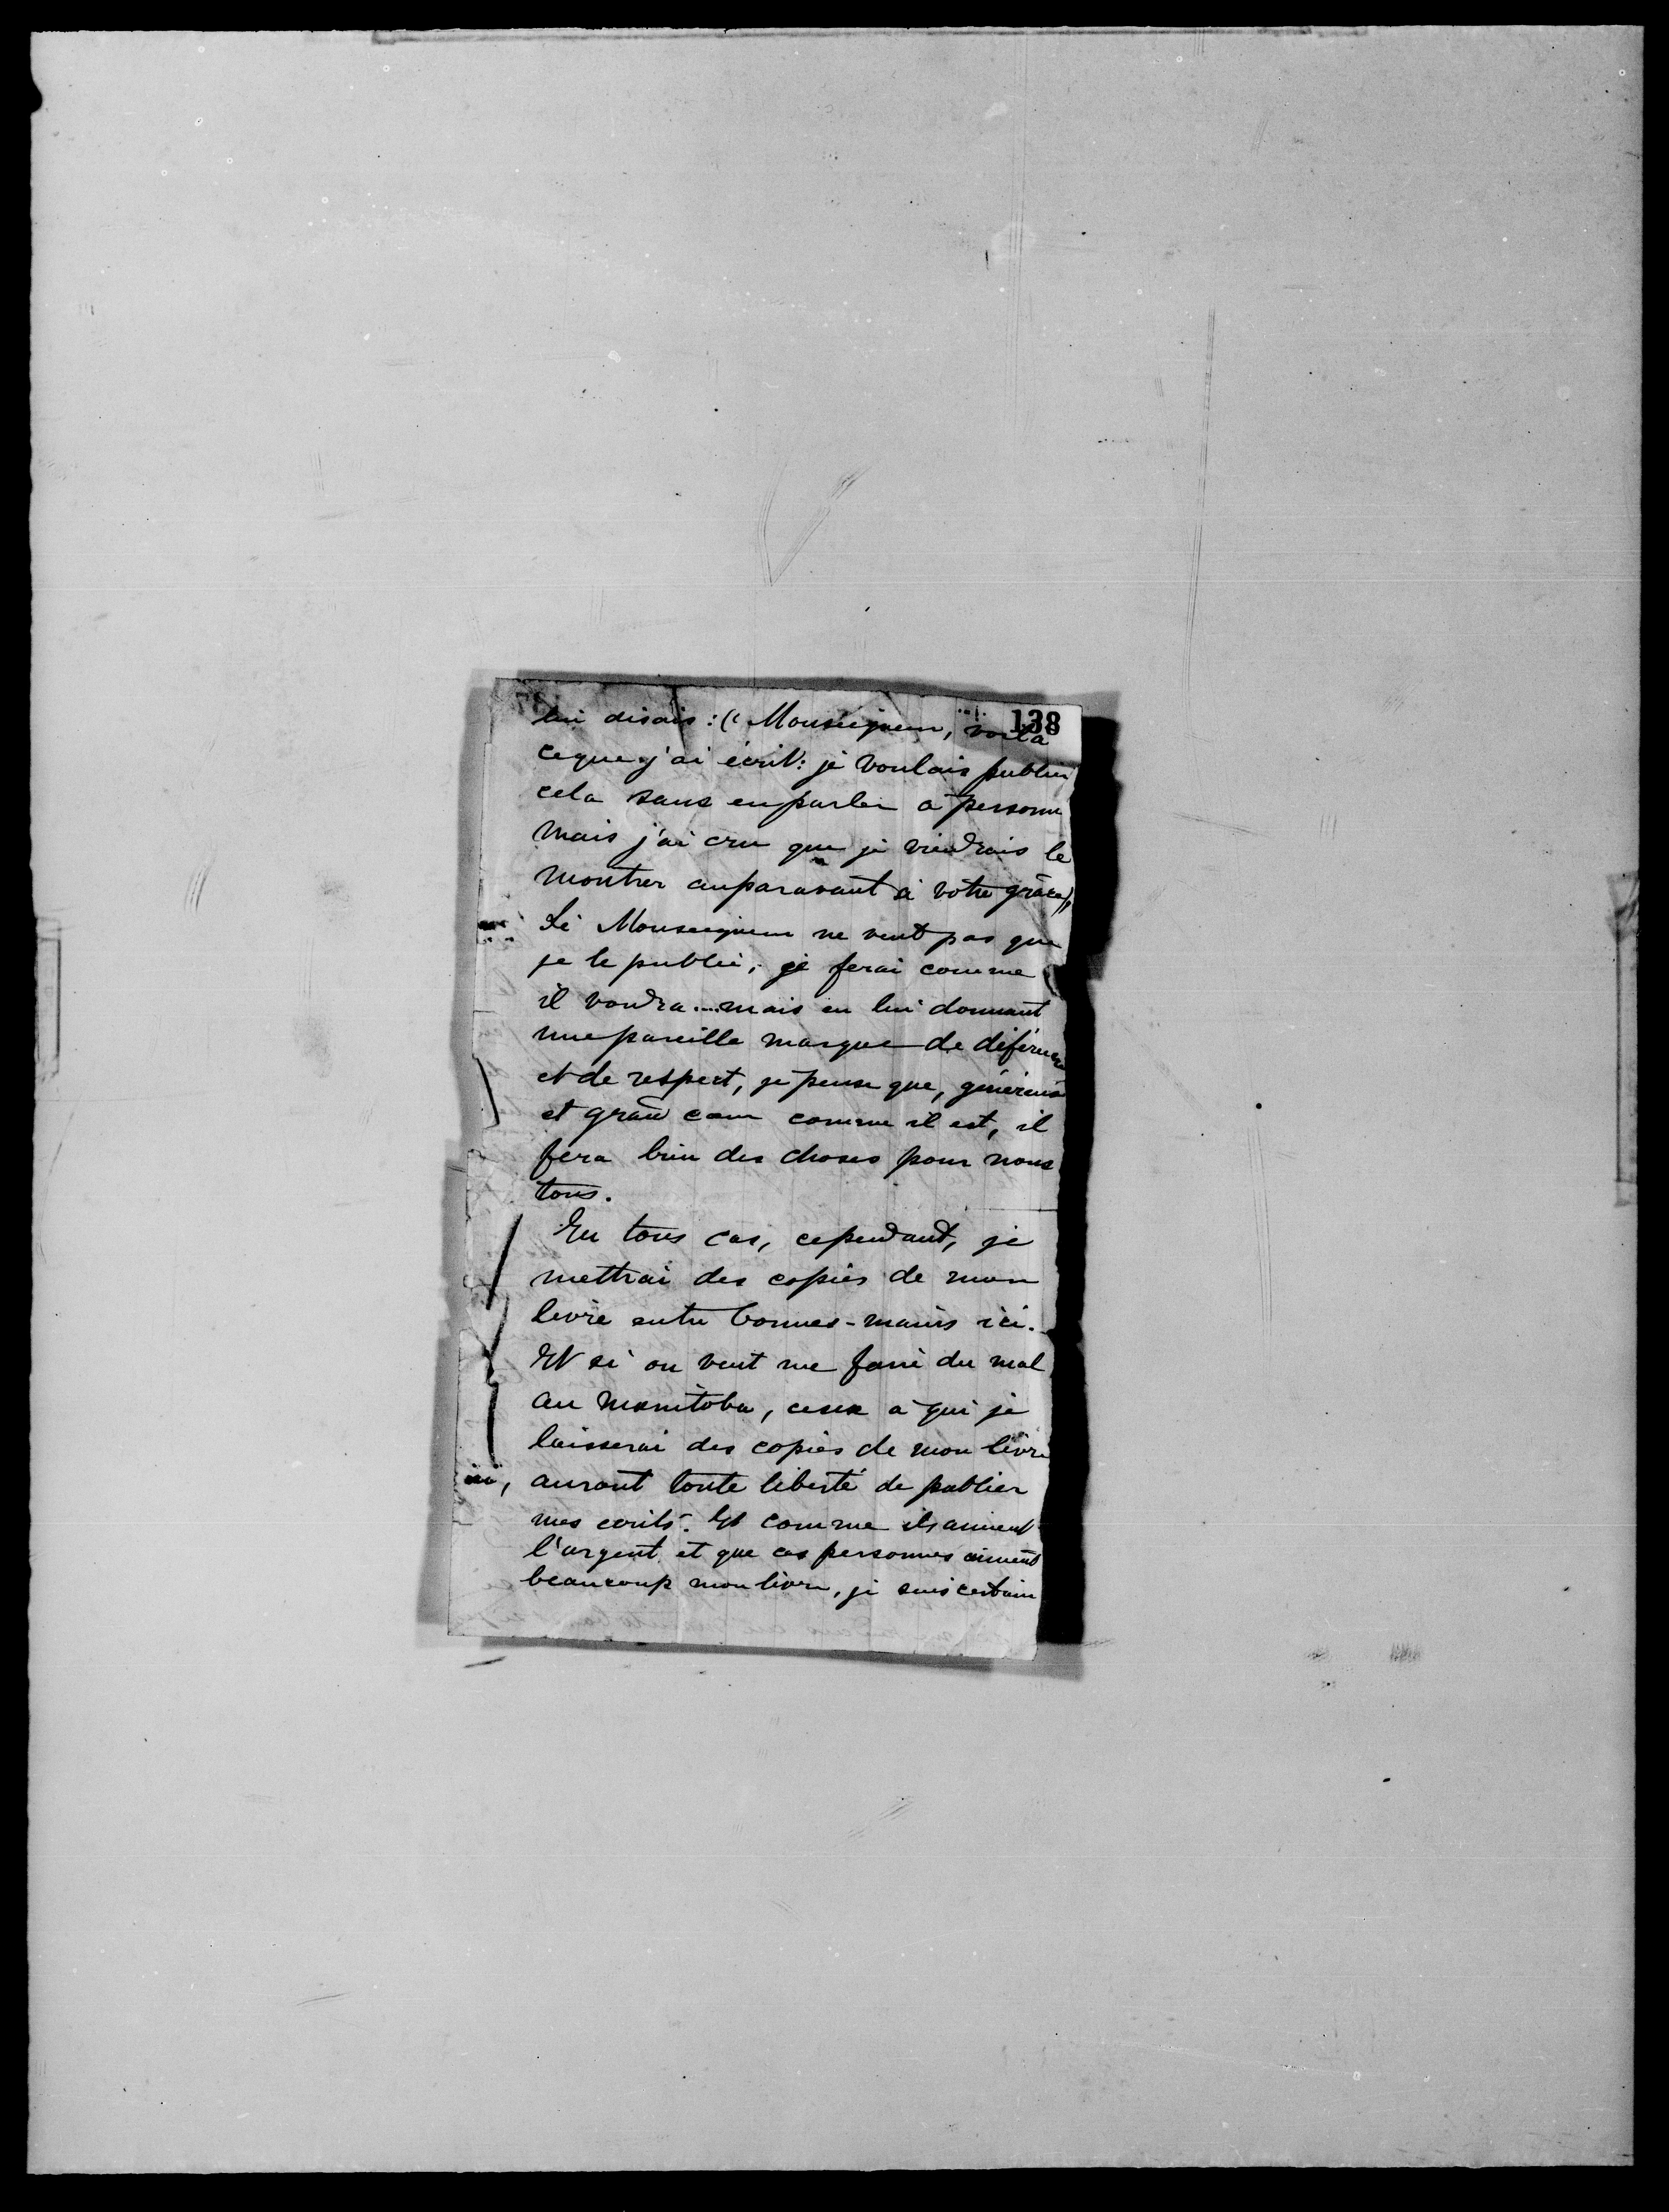 138
lui disais : (( Monseigneur, voilà
ce que j'ai écrit: je voulais publier
cela sans en parler à personne
mais j'ai cru que je viendrais le
montrer auparavant à votre grâce))
Si Monseigneur ne veut pas que
je le publie, je ferai comme
il voudra.... mais en lui donnant
une pareille marque de déférence
et de respect, je pense que, généreux
et grand cœur comme il est, il
fera bien des choses pour nous
tous.
En tous cas, cependant, je
mettrai des copies de mon
livre entre bonnes-mains ici.
Et si on veut me faire du mal
au Manitoba, ceux à qui je
laisserai des copies de mon livre
ici, auront toute liberté de publier
mes écrits. Et comme ils aiment
l'argent et que ces personnes aiment
beaucoup mon livre, je suis certain